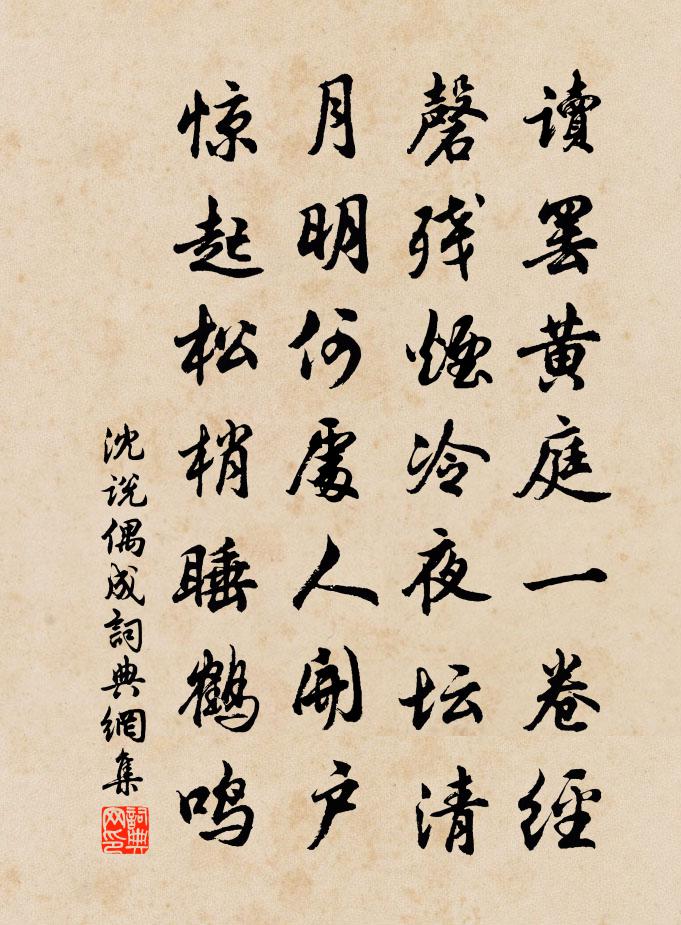 讀罢黄庭一卷經
磬残煙冷夜坛清
月明何處人開户
惊起松梢睡鶴鸣
沈说偶成詞典網集
詞典
网印